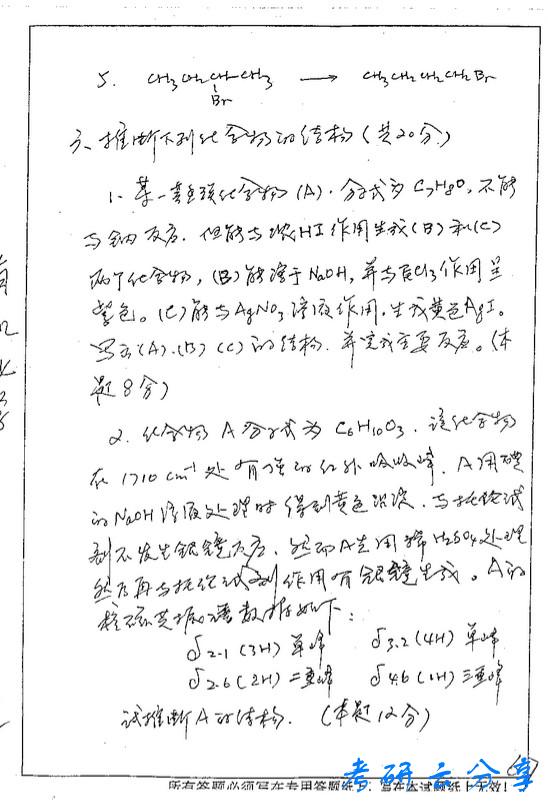 5. CH3CH2CHCH3 → CH3CH2CH2CH2Br
Br
六、推断下列化合物的结构(共20分)
1、某一芳香族化合物(A)，分子式为C7H8O，不能
与钠反应，但能与浓HI作用生成(B)和(C)
两个化合物，(B)能溶于NaOH，并与FeCl3作用呈
紫色。(C)能与AgNO3溶液作用，生成黄色AgI。
写出(A)、(B)、(C)的结构，并完成主要反应。(本
题8分)
2、化合物A分子式为C6H10O3，该化合物
在1710cm-1处有强的红外吸收峰，A用碘
的NaOH溶液处理时得到黄色沉淀，与托伦试
剂不发生银镜反应，然而A先用稀H2SO4处理
然后再与托伦试剂作用有银镜生成。A的
核磁共振谱数据如下：
δ2.1 (3H) 单峰 δ3.2 (4H) 单峰
δ2.6 (2H) 二重峰 δ4.6 (1H) 三重峰
试推断A的结构。(本题12分)
考研云分享
所有答题必须写在专用答题纸上，写在本试题纸上无效！